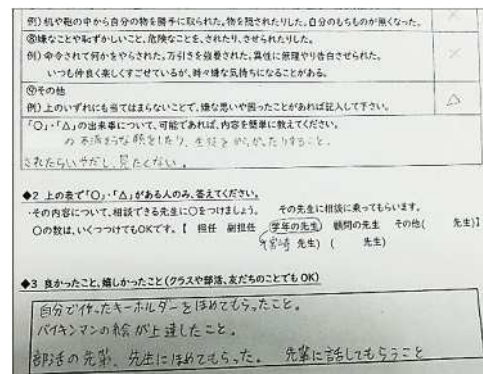 例) 机や鞄の中から自分の物を勝手に取られた。物を隠されたりした。自分のもちものが無くなった。
×
⑧嫌なことや恥ずかしいこと、危険なことを、されたり、させられたりした。
例) 命令されて何かをやらされた。万引きを強要された。異性に無理やり告白させられた。
いつも仲良く楽しくすごせているが、時々嫌な気持ちになることがある。
×
⑨その他
例) 上のいずれにも当てはまらないことで、嫌な思いや困ったことがあれば記入して下さい。
△
「○」・「△」の出来事について、可能であれば、内容を簡単に教えてください。
不満そうな顔をしたり、生徒をからかったりすること。
されたらいやだし、見たくない。
◆2 上の表で「○」・「△」がある人のみ、答えてください。
・その内容について、相談できる先生に○をつけましょう。 その先生に相談に乗ってもらいます。
○の数は、いくつつけてもOKです。【 担任 副担任 学年の先生 顧問の先生 その他( 先生)】
(宮崎 先生) ( 先生)
◆3 良かったこと、嬉しかったこと(クラスや部活、友だちのことでもOK)
自分で作ったキーホルダーをほめてもらったこと。
バイキンマンの絵が上達したこと。
部活の先輩、先生にほめてもらった。 先輩に話してもらうこと